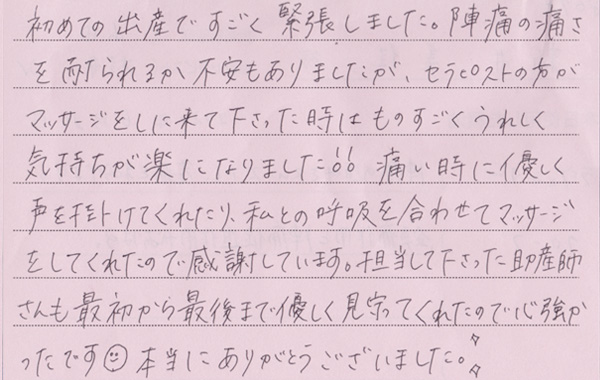 初めての出産ですごく緊張しました。陣痛の痛さ
を耐られるか不安もありましたが、セラピストの方が
マッサージをしに来て下さった時はものすごくうれしく
気持ちが楽になりました!! 痛い時に優しく
声を掛けてくれたり、私との呼吸を合わせてマッサージ
をしてくれたので感謝しています。担当して下さった助産師
さんも最初から最後まで優しく見守ってくれたので心強か
ったです☺本当にありがとうございました。